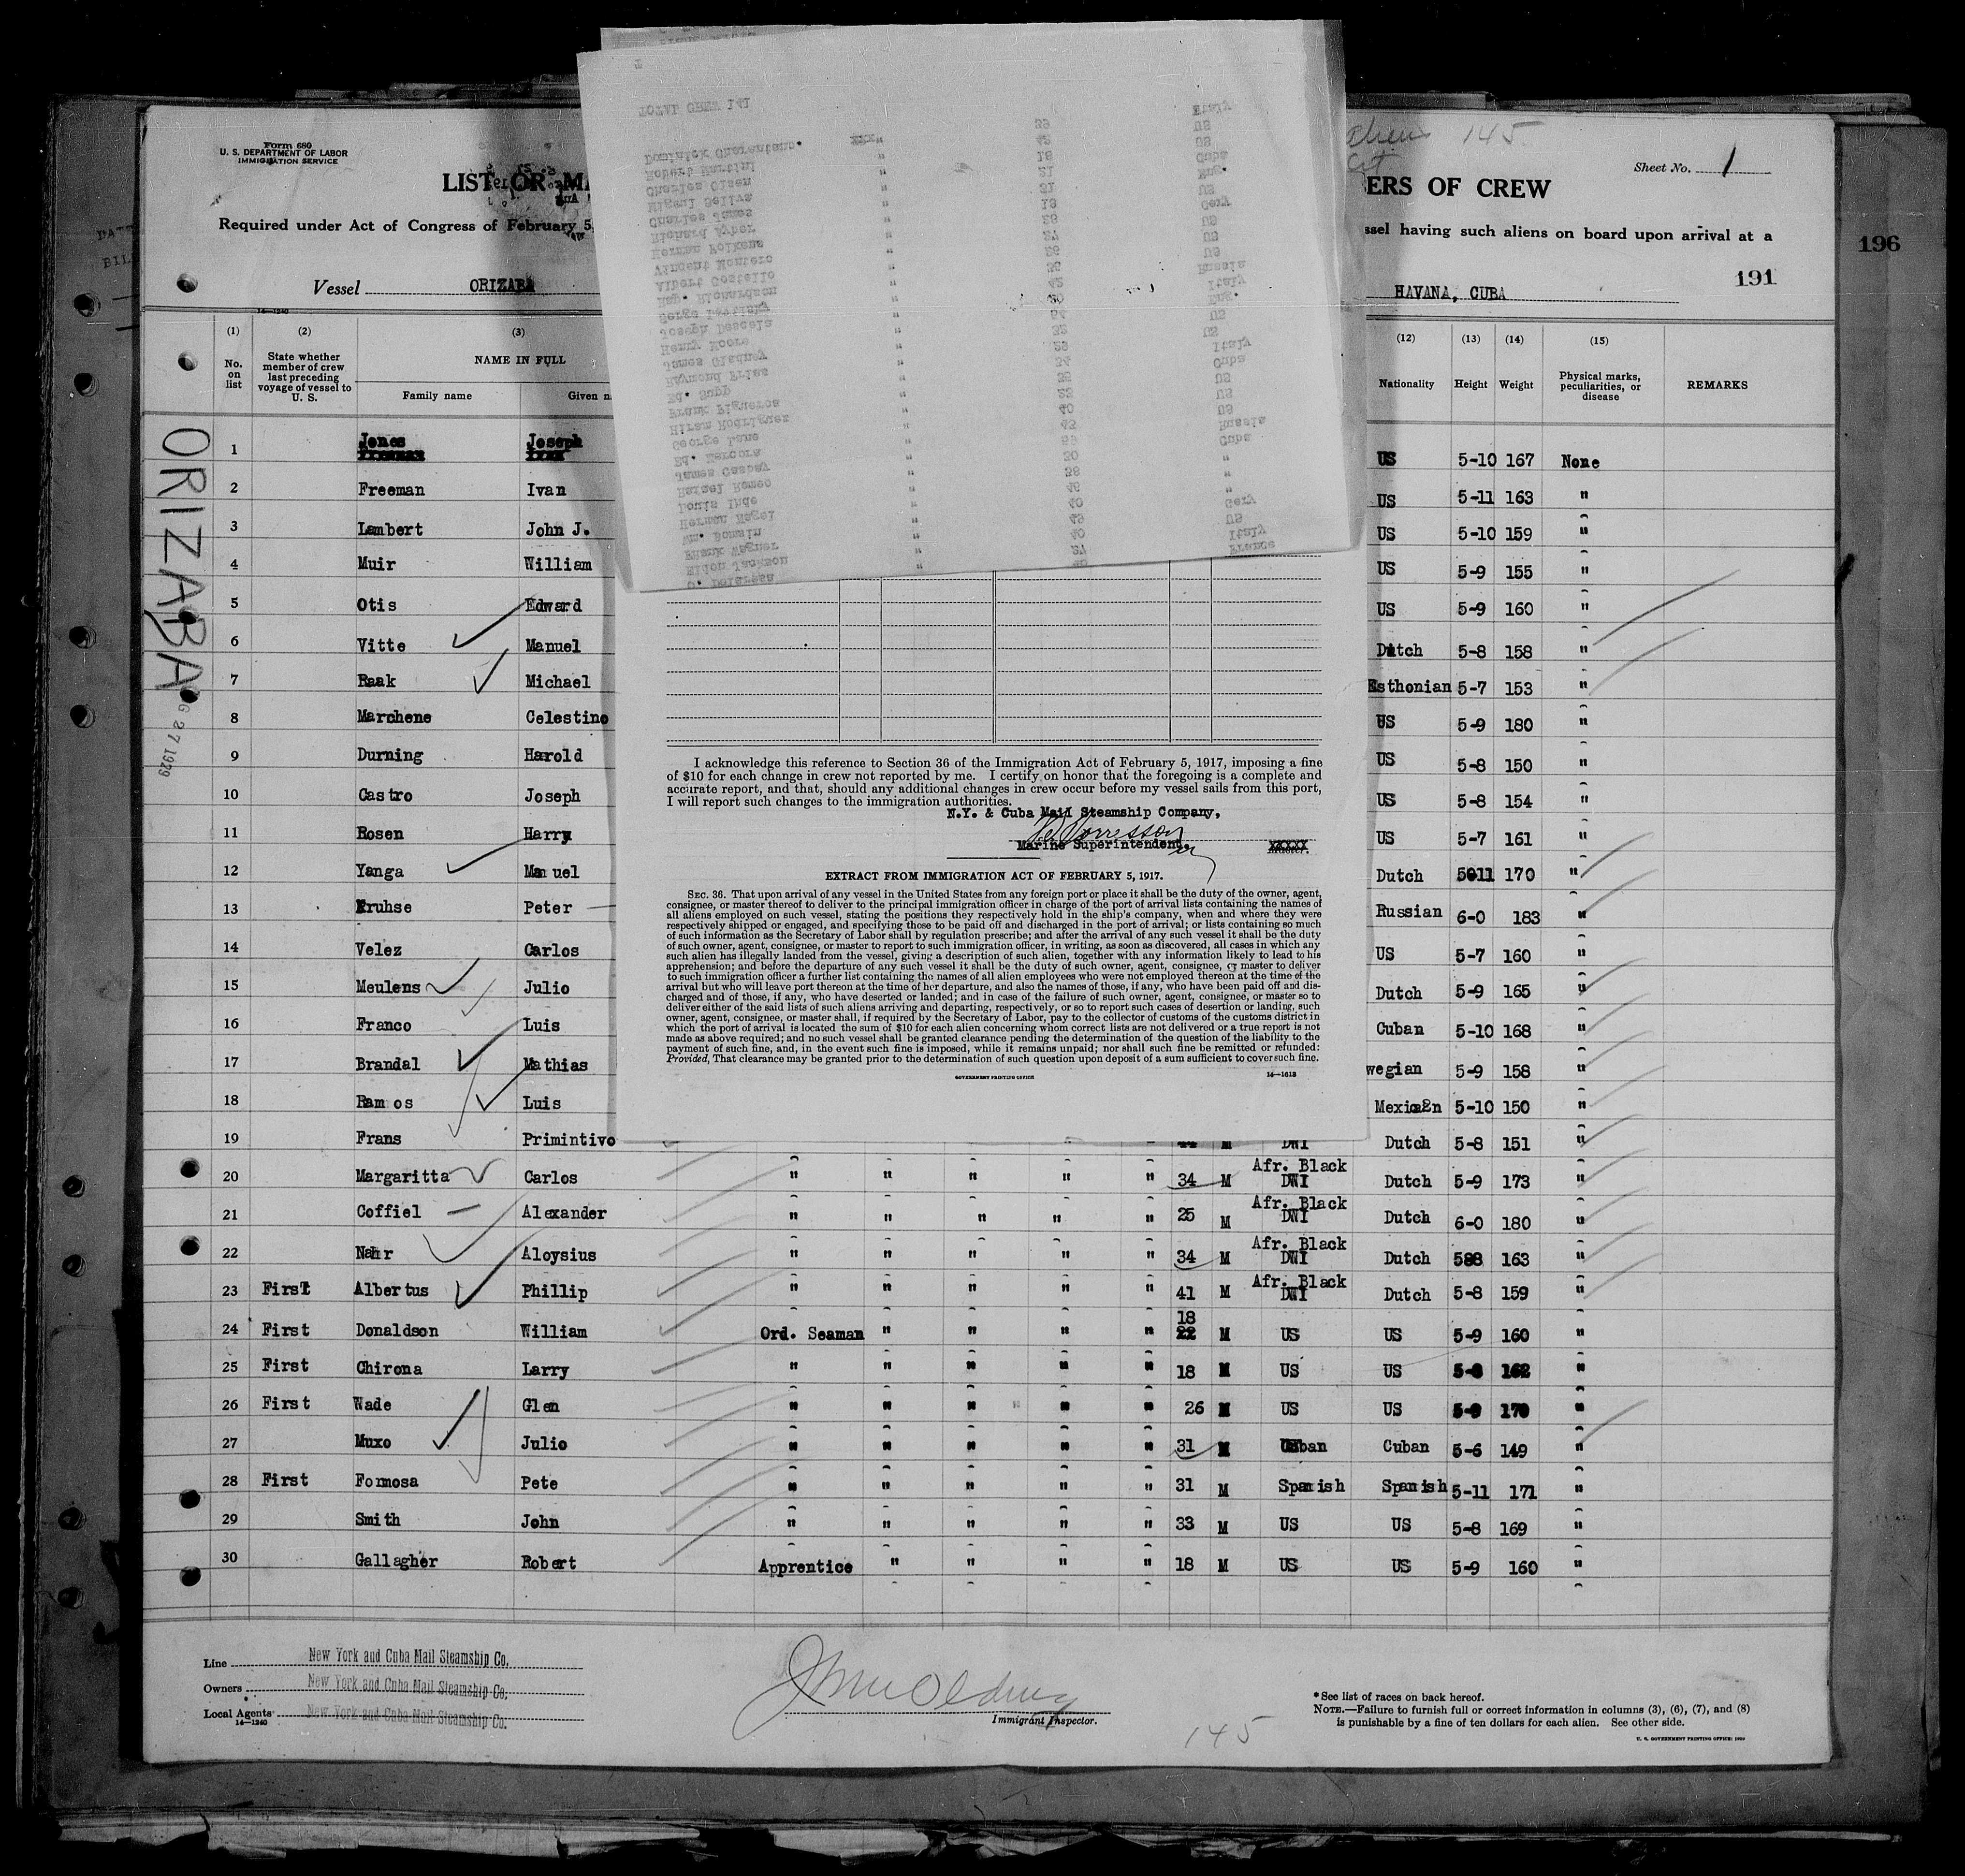 Form 680
U. S. DEPARTMENT OF LABOR
IMMIGRATION SERVICE
145
Sheet No. 1
LIST OR
ERS OF CREW
Required under Act of Congress of February 5,
ssel having such aliens on board upon arrival at a
196
191
Vessel ORIZABA
HAVANA, CUBA
14—1240
(1) (2) (3) (12) (13) (14) (15)
No. on list
State whether member of crew last preceding voyage of vessel to U. S.
NAME IN FULL
Family name
Given n
Nationality Height Weight
Physical marks, peculiarities, or disease
REMARKS
ORIZABA
G 27 1929
1 Jones Joseph US 5-10 167 None
2 Freeman Ivan US 5-11 163 "
3 Lambert John J. US 5-10 159 "
4 Muir William US 5-9 155 "
5 Otis Edward US 5-9 160 "
6 Vitte Manuel Dutch 5-8 158 "
7 Raak Michael Esthonian 5-7 153 "
8 Marchene Celestino US 5-9 180 "
9 Durning Harold US 5-8 150 "
10 Castro Joseph US 5-8 154 "
11 Rosen Harry US 5-7 161 "
12 Yanga Manuel Dutch 5011 170 "
13 Kruhse Peter Russian 6-0 183 "
14 Velez Carlos US 5-7 160 "
15 Meulens Julio Dutch 5-9 165 "
16 Franco Luis Cuban 5-10 168 "
17 Brandal Mathias wegian 5-9 158 "
18 Ramos Luis Mexican 5-10 150 "
19 Frans Primintivo 44 M DWI Dutch 5-8 151 "
20 Margaritta Carlos " " " " " 34 M Afr. Black DWI Dutch 5-9 173 "
21 Coffiel Alexander " " " " " 25 M Afr. Black DWI Dutch 6-0 180 "
22 Nahr Aloysius " " " " " 34 M Afr. Black DWI Dutch 588 163 "
23 First Albertus Phillip " " " " " 41 M Afr. Black DWI Dutch 5-8 159 "
24 First Donaldson William Ord. Seaman " " " " 18 22 M US US 5-9 160 "
25 First Chirona Larry " " " " " 18 M US US 5-8 162 "
26 First Wade Glen " " " " " 26 M US US 5-9 170 "
27 Muxo Julio " " " " " 31 M Cuban Cuban 5-6 149 "
28 First Formosa Pete " " " " " 31 M Spanish Spanish 5-11 171 "
29 Smith John " " " " " 33 M US US 5-8 169 "
30 Gallagher Robert Apprentice " " " " 18 M US US 5-9 160 "
TOTAL CREW 141
Italy
39 US
Dominick Chorentano. " 42 US
Robert Martini " 18 Cuba
Charles Olsen " 21 Eng.
Miguel Seliva " 31 US
Charles James " Gery
Richard Ayber " 28 US
Herman Folkens " 37 US
Vincent Montero " US
Albert Costello " Russia
Reg. Richardson " 42 Italy
Serge " Eng.
Joseph Descels " US
Henry Moore " 32 US
James Gladney " Italy
Raymond Frias " Cuba
Ed. Supp " US
Frank Figueroa " US
Hiram Rodriguez " 40 US
George Lane " Russia
Ed. Marcora " Cuba
James Caspay " 30 "
Rafael Romeo " "
Louis Inde " "
Herman Nagel " 40 Gery
Wm. Bomain " US
Frank Wagner " 40 Italy
Eldon Jackson " 37 France
I acknowledge this reference to Section 36 of the Immigration Act of February 5, 1917, imposing a fine
of $10 for each change in crew not reported by me. I certify on honor that the foregoing is a complete and
accurate report, and that, should any additional changes in crew occur before my vessel sails from this port,
I will report such changes to the immigration authorities.
N.Y. & Cuba Mail Steamship Company,
Marine Superintendent. XXXXX
Master.
EXTRACT FROM IMMIGRATION ACT OF FEBRUARY 5, 1917.
SEC. 36. That upon arrival of any vessel in the United States from any foreign port or place it shall be the duty of the owner, agent,
consignee, or master thereof to deliver to the principal immigration officer in charge of the port of arrival lists containing the names of
all aliens employed on such vessel, stating the positions they respectively hold in the ship's company, when and where they were
respectively shipped or engaged, and specifying those to be paid off and discharged in the port of arrival; or lists containing so much
of such information as the Secretary of Labor shall by regulation prescribe; and after the arrival of any such vessel it shall be the duty
of such owner, agent, consignee, or master to report to such immigration officer, in writing, as soon as discovered, all cases in which any
such alien has illegally landed from the vessel, giving a description of such alien, together with any information likely to lead to his
apprehension; and before the departure of any such vessel it shall be the duty of such owner, agent, consignee, or master to deliver
to such immigration officer a further list containing the names of all alien employees who were not employed thereon at the time of the
arrival but who will leave port thereon at the time of her departure, and also the names of those, if any, who have been paid off and dis-
charged and of those, if any, who have deserted or landed; and in case of the failure of such owner, agent, consignee, or master so to
deliver either of the said lists of such aliens arriving and departing, respectively, or so to report such cases of desertion or landing, such
owner, agent, consignee, or master shall, if required by the Secretary of Labor, pay to the collector of customs of the customs district in
which the port of arrival is located the sum of $10 for each alien concerning whom correct lists are not delivered or a true report is not
made as above required; and no such vessel shall be granted clearance pending the determination of the question of the liability to the
payment of such fine, and, in the event such fine is imposed, while it remains unpaid; nor shall such fine be remitted or refunded:
Provided, That clearance may be granted prior to the determination of such question upon deposit of a sum sufficient to cover such fine.
GOVERNMENT PRINTING OFFICE 14—1613
Line New York and Cuba Mail Steamship Co.
Owners New York and Cuba Mail Steamship Co.
Local Agents New York and Cuba Mail Steamship Co.
14—1240
Immigrant Inspector.
145
* See list of races on back hereof.
NOTE.—Failure to furnish full or correct information in columns (3), (6), (7), and (8)
is punishable by a fine of ten dollars for each alien. See other side.
U. S. GOVERNMENT PRINTING OFFICE: 1929